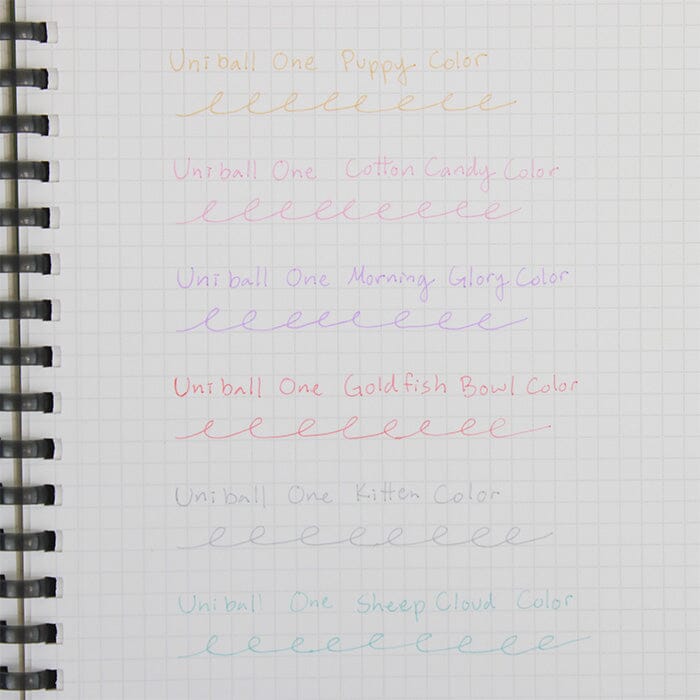 Uniball One Puppy Color
Uniball One Cotton Candy Color
Uniball One Morning Glory Color
Uniball One Goldfish Bowl Color
Uniball One Kitten Color
Uniball One Sheep Cloud Color